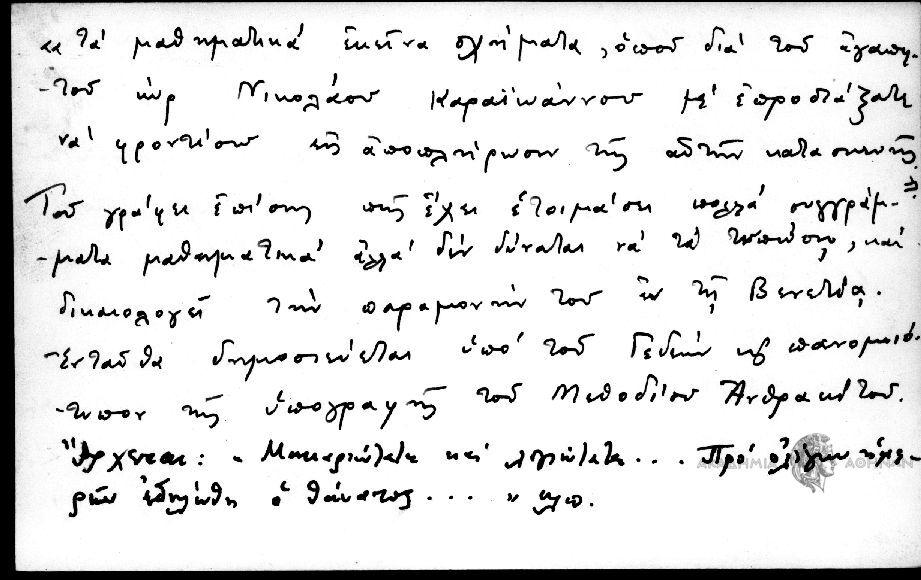 «τὰ μαθηματικά ἐκεῖνα σχήματα, ὁποῦ διά τοῦ ἀγαπη-
-τοῦ κύρ Νικολάου Καραϊωάννου μέ ἐπροστάξατε
νά φροντίσω εἰς ἀποπλήρωσιν τῆς αὐτῆν κατασκευῆς»
Τοῦ γράφει ἐπίσης πῶς ἔχει ἑτοιμάσει πολλά συγγράμ-
-ματα μαθηματικά ἀλλά δέν δύναται νά τά τυπώσῃ, καί
δικαιολογεῖ τήν παραμονήν του ἐν τῇ Βενετίᾳ.
-Ἐνταῦθα δημοσιεύεται ὑπό τοῦ Γεδεών καί πανομοιό-
-τυπον τῆς ὑπογραφῆς τοῦ Μεθοδίου Ἀνθρακίτου.
Ἄρχεται: « Μακαριώτατε καί λογιώτατε... Πρό ὀλίγων ἡμε-
ρῶν ἐδηλώθη ὁ θάνατος... » κλπ.
ΑΚΑΔΗΜΙΑ ΑΘΗΝΩΝ